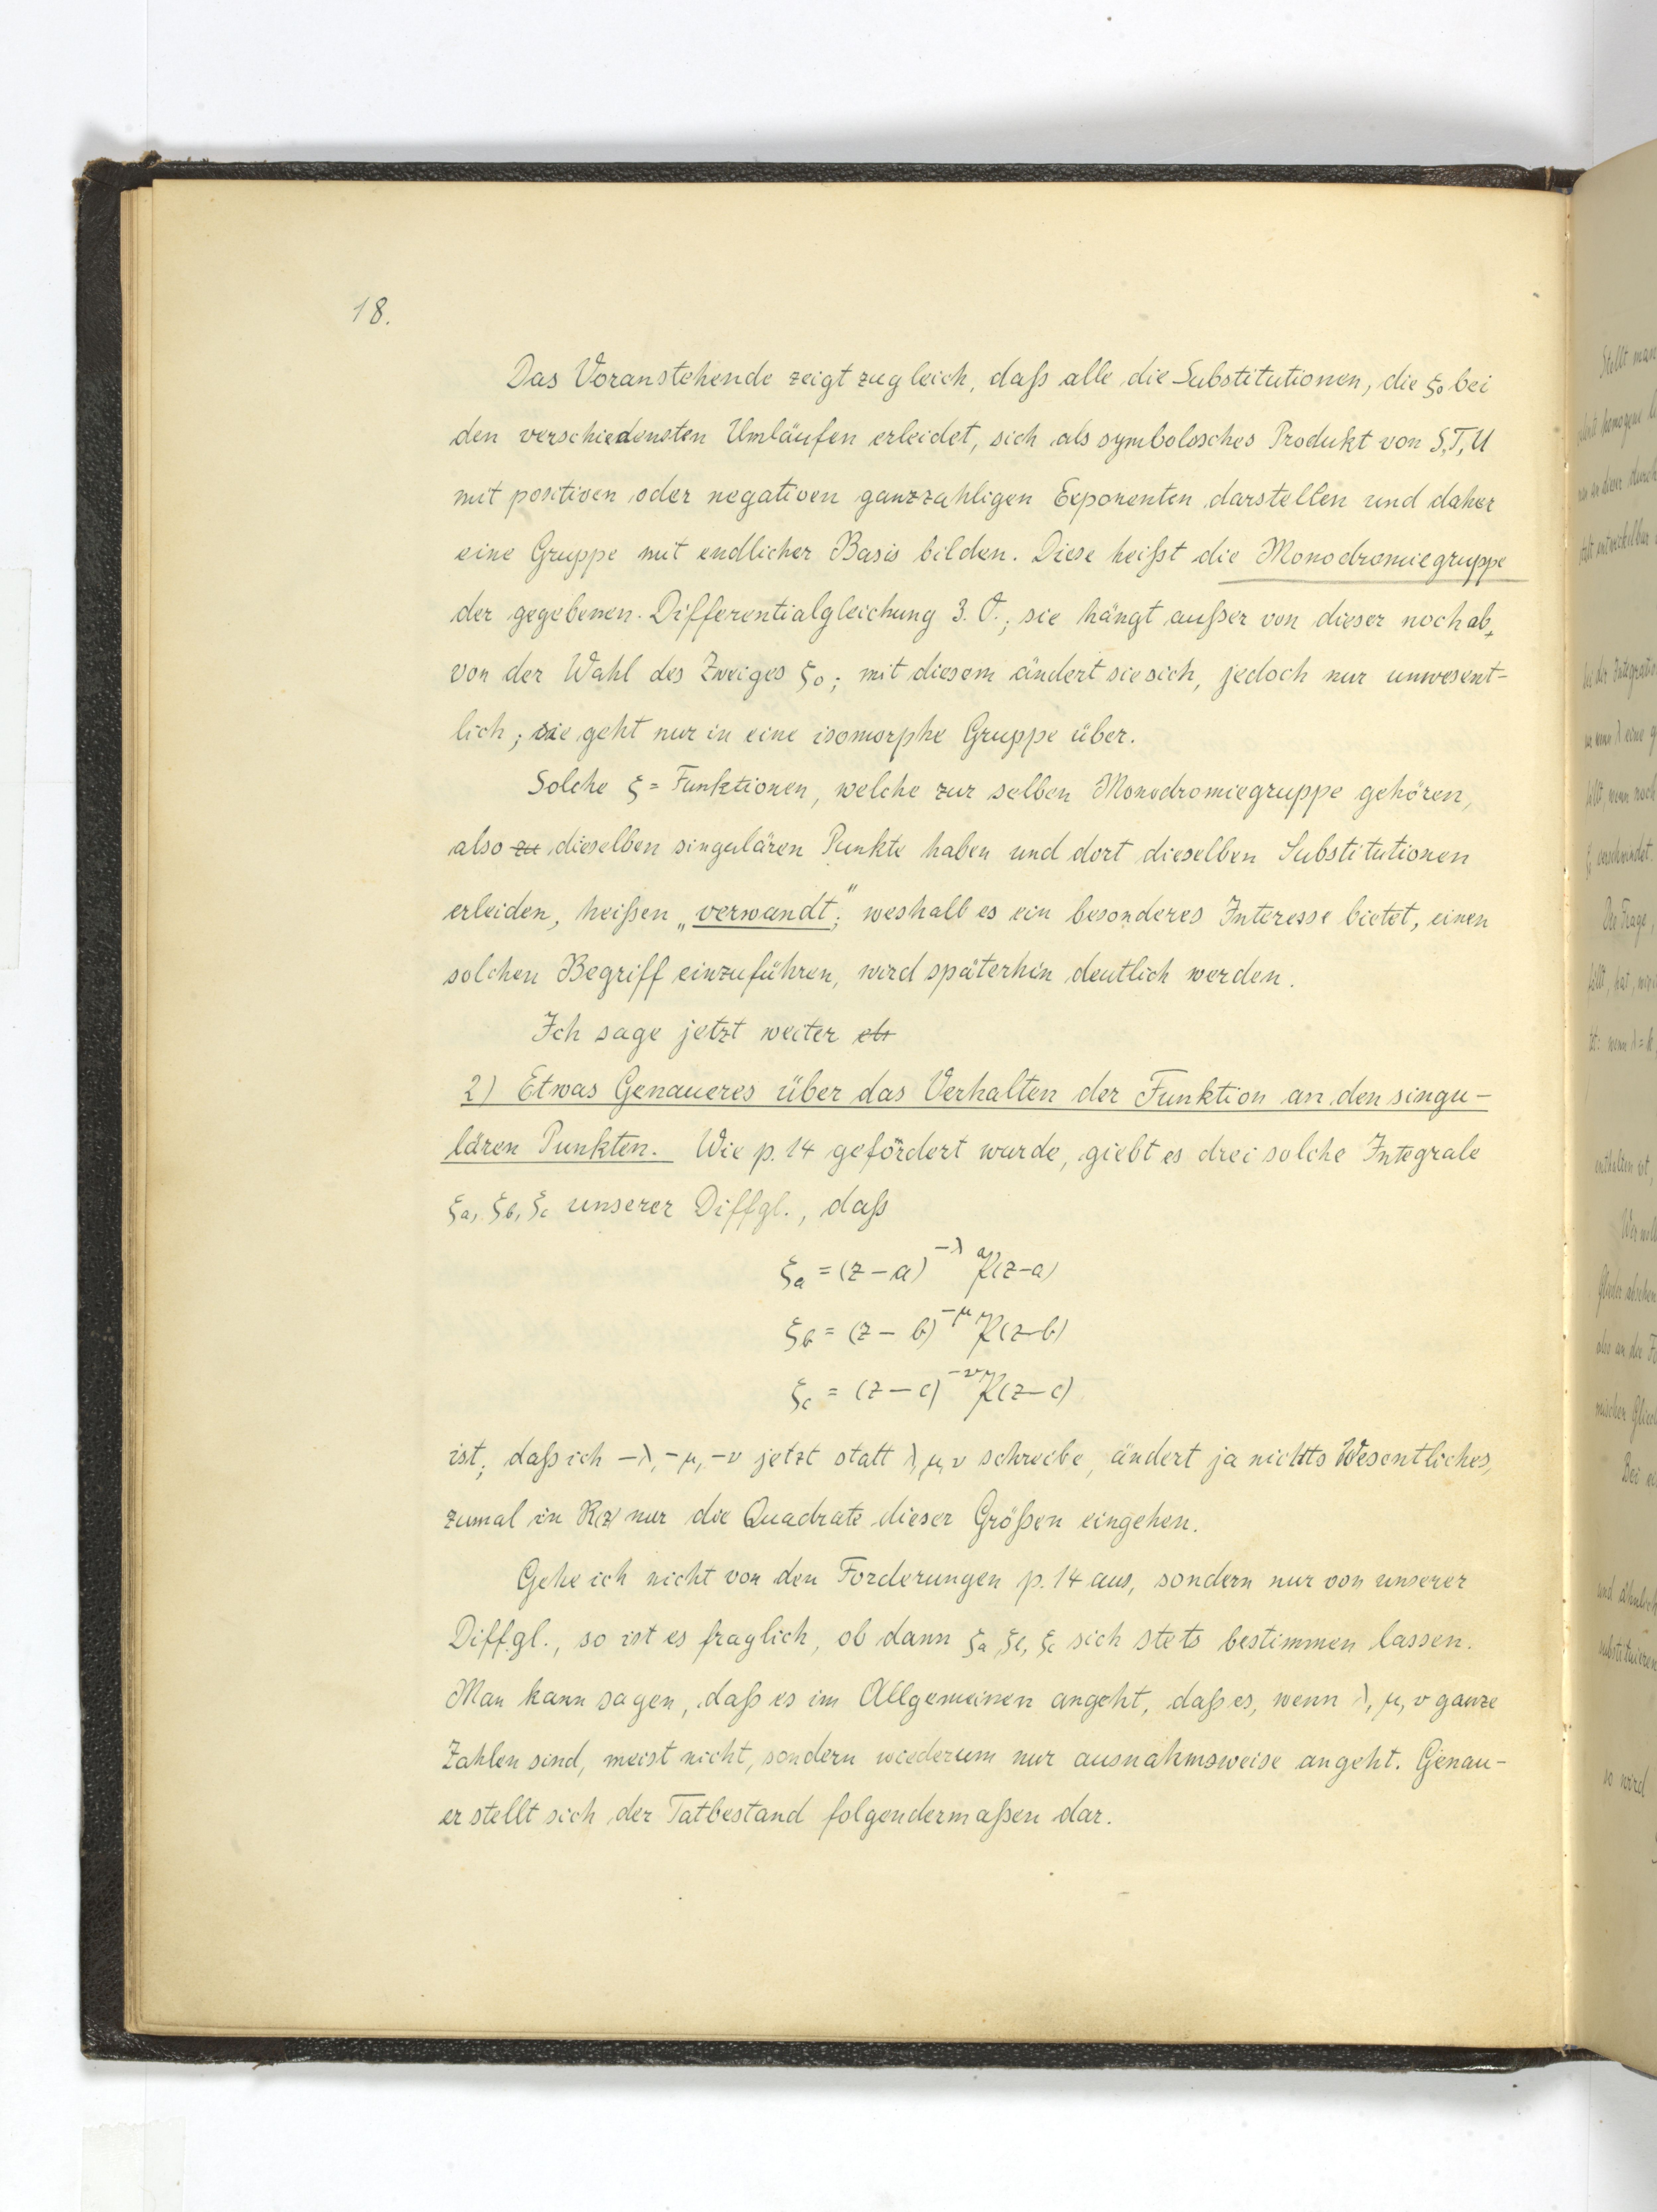 18.
Das Voranstehende zeigt zugleich, daß alle die Substitutionen, die ξ₀ bei
den verschiedensten Umläufen erleidet, sich als symbolisches Produkt von S, T, U
mit positiven oder negativen ganzzahligen Exponenten darstellen und daher
eine Gruppe mit endlicher Basis bilden. Diese heißt die Monodromiegruppe
der gegebenen Differentialgleichung 3. O.; sie hängt außer von dieser noch ab,
von der Wahl des Zweiges ξ₀; mit diesem ändert sie sich, jedoch nur unwesent-
lich; sie geht nur in eine isomorphe Gruppe über.
Solche ξ = Funktionen, welche zur selben Monodromiegruppe gehören,
also zu dieselben singulären Punkte haben und dort dieselben Substitutionen
erleiden, heißen „verwandt"; weshalb es ein besonderes Interesse bietet, einen
solchen Begriff einzuführen, wird späterhin deutlich werden.
Ich sage jetzt weiter
2) Etwas Genaueres über das Verhalten der Funktion an den singu-
lären Punkten. Wie p. 14 gefördert wurde, giebt es drei solche Integrale
ξa, ξb, ξc unserer Diffgl., daß
ξa = (z – a)^–λ 𝔓(z–a)
ξb = (z – b)^–μ 𝔓(z–b)
ξc = (z – c)^–ν 𝔓(z–c)
ist; daß ich –λ, –μ, –ν jetzt statt λ, μ, ν schreibe, ändert ja nichts Wesentliches,
zumal in R(z) nur die Quadrate dieser Größen eingehen.
Gehe ich nicht von den Forderungen p. 14 aus, sondern nur von unserer
Diffgl., so ist es fraglich, ob dann ξa, ξb, ξc sich stets bestimmen lassen.
Man kann sagen, daß es im Allgemeinen angeht, daß es, wenn λ, μ, ν ganze
Zahlen sind, meist nicht, sondern wiederum nur ausnahmsweise angeht. Genau-
er stellt sich der Tatbestand folgendermaßen dar.
Stellt man